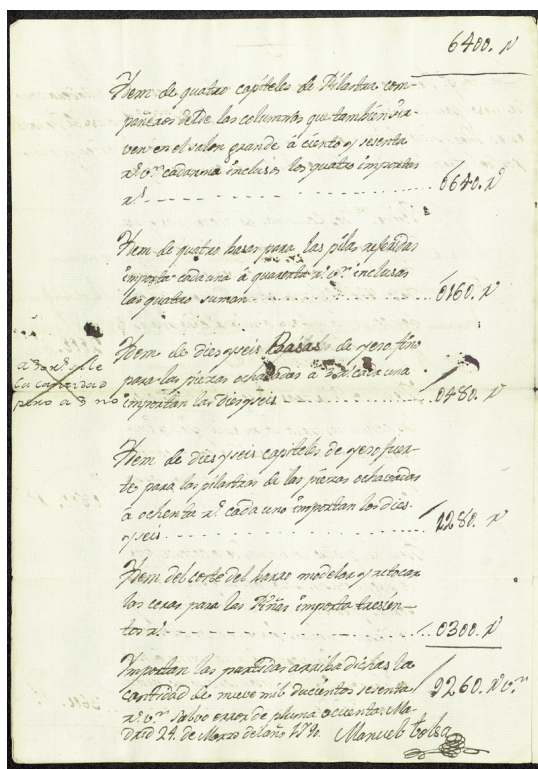 6400. rˢ
Item de quatro capiteles de Pilastra com-
pañeros de los de las columnas que tambien sir-
ven en el salon grande á ciento y sesenta
rˢ. vⁿ. cada una inclusos los quatro importan
rˢ. 0640. rˢ
Item de quatro basas para las pilas referidas
importa cada una á quarenta rˢ. vⁿ. inclusas
las quatro suman 0160. rˢ
Item de dies y seis Basas de yeso fino
para las piezas ochavadas á 30 rˢ. cada una
importan las dies y seis 0480. rˢ
a 30 rˢ. sale
la cantidad
pero a 3 no
Item de dies y seis capiteles de yeso fuer-
te para las pilastras de las piezas ochavadas
á ochenta rˢ. cada uno importan los dies
y seis 1280. rˢ
Item del corte del barro modelar y retocar
las ceras para las Piñas importa tresien-
tos rˢ. 0300. rˢ
Importan las partidas arriba dichas la
cantidad de nueve mil ducientos sesenta 9260. rˢ vⁿ
rˢ. vⁿ. salvo error de pluma o cuenta. Ma-
drid 24. de Marzo del año 1790. Manuel Tolsa